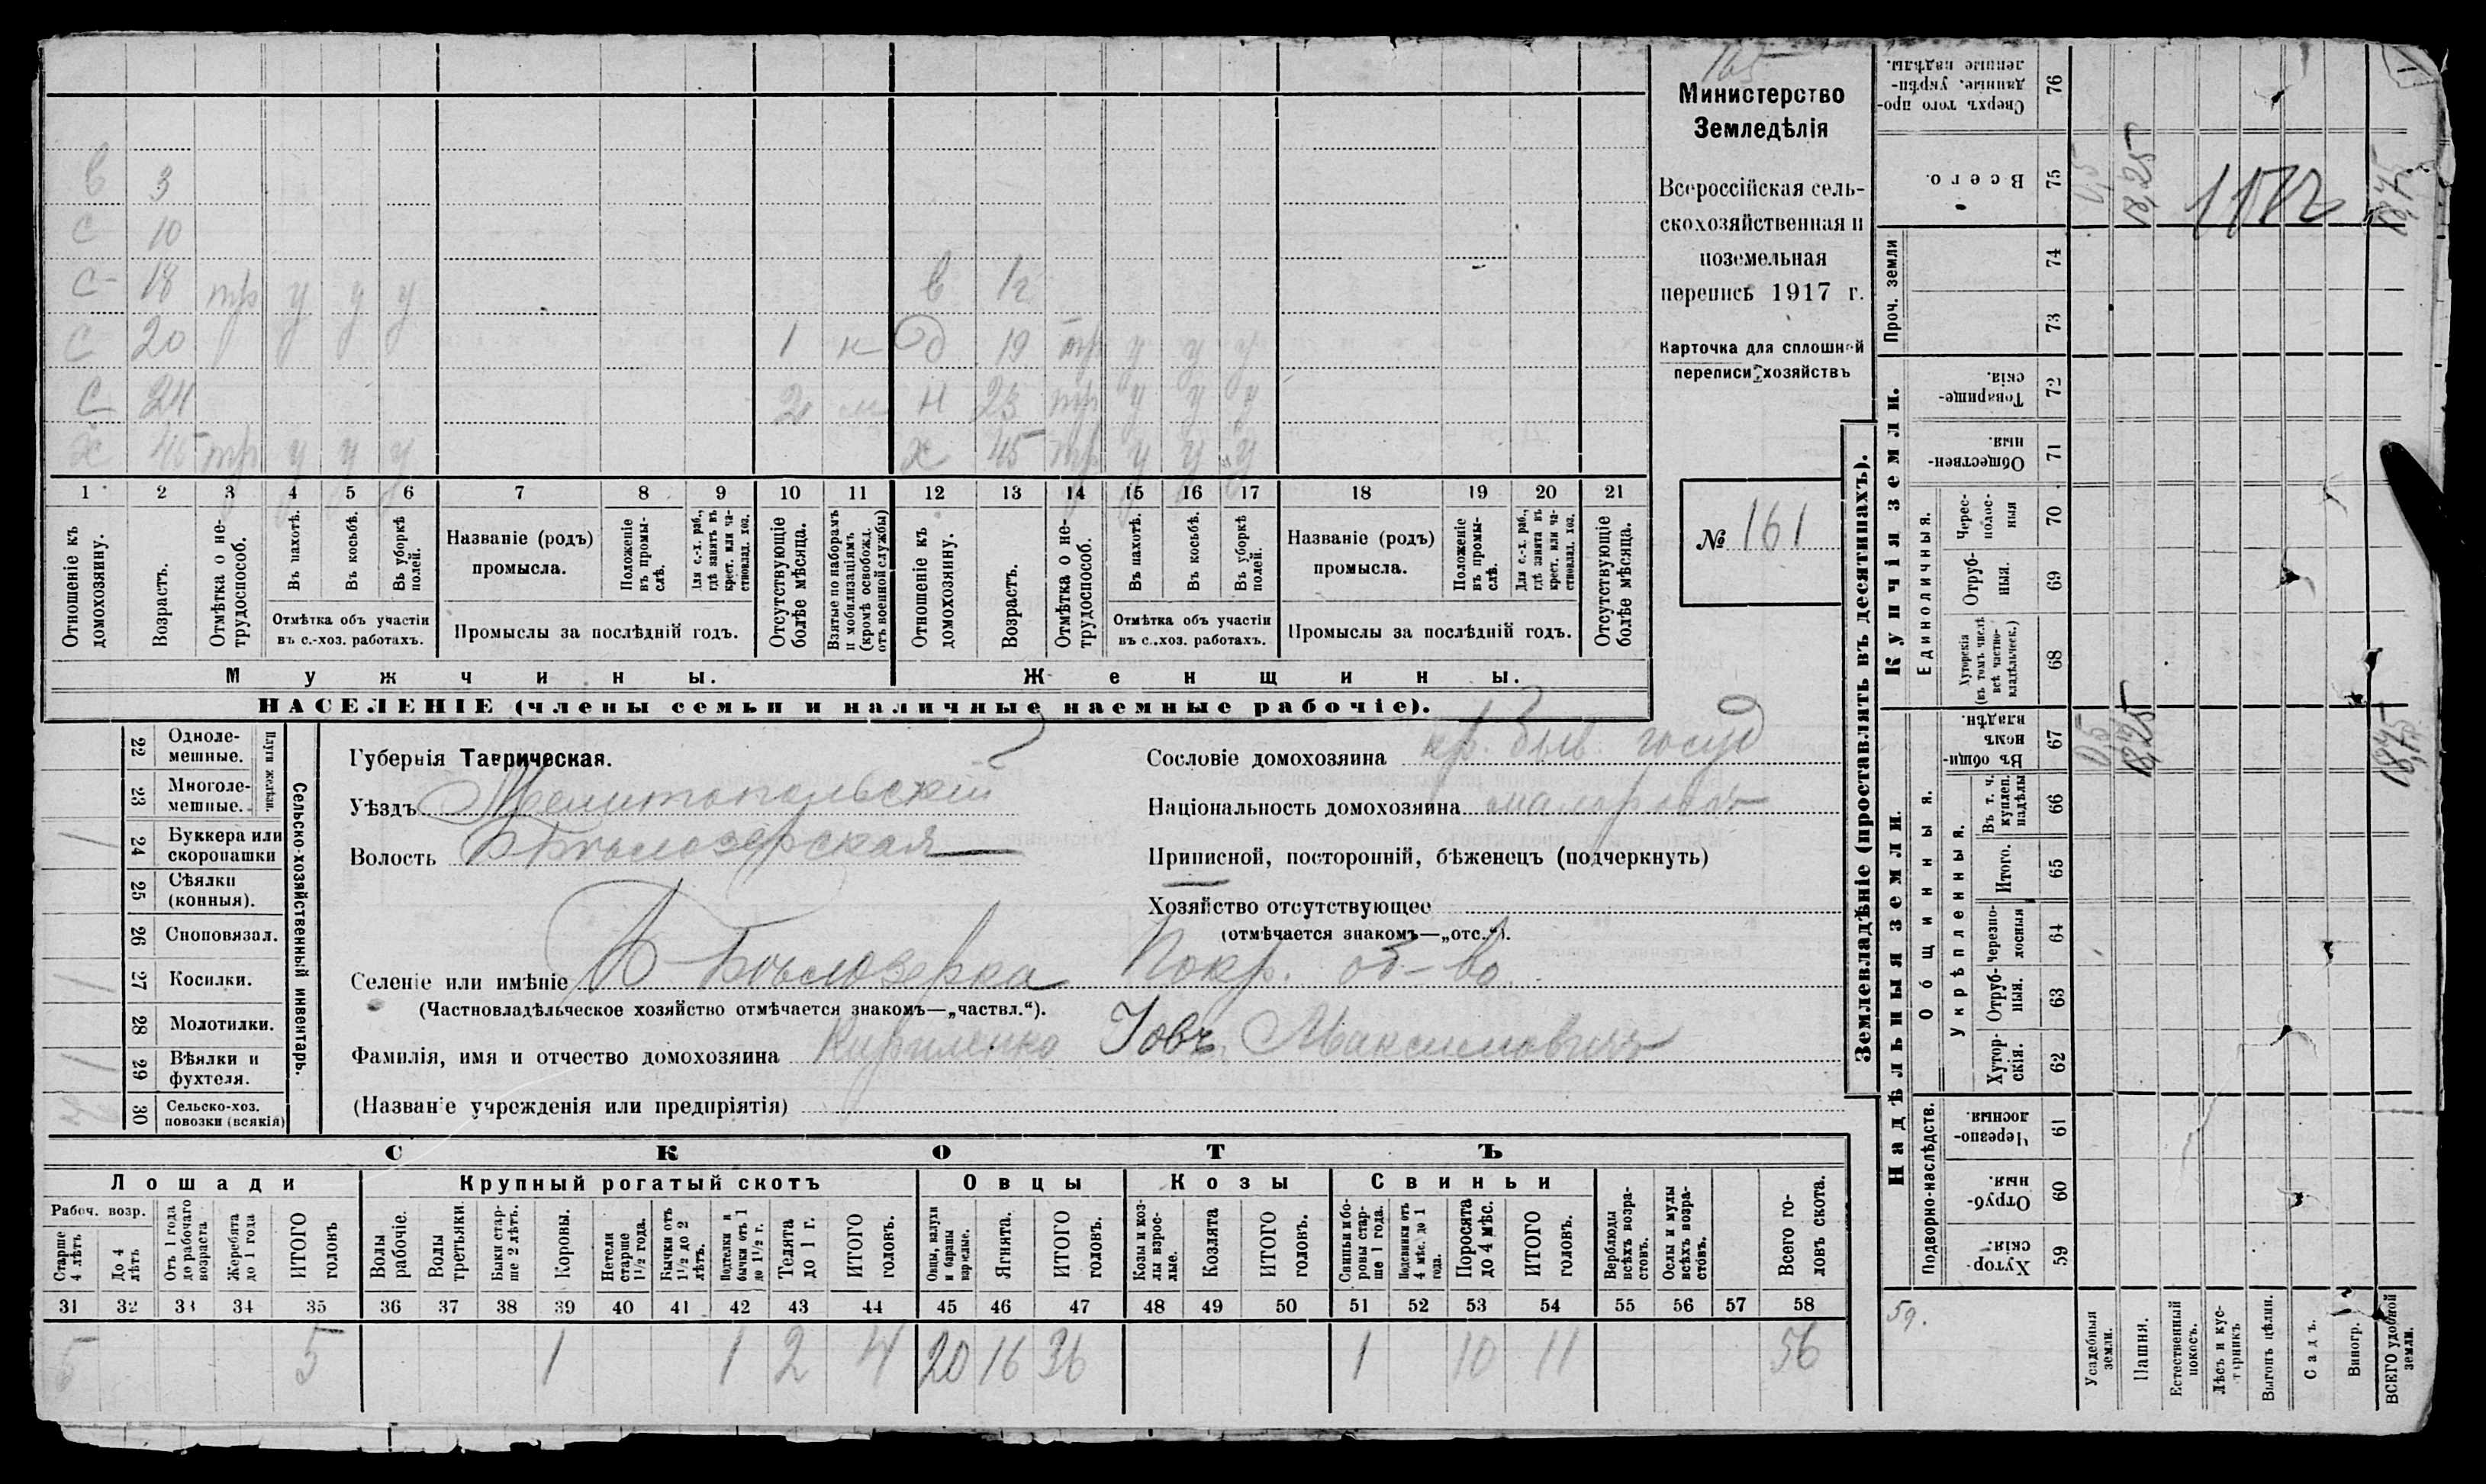 165
Министерство
Земледѣлія
Всероссійская сель-
скохозяйственная и
поземельная
перепись 1917 г.
Карточка для сплошной
переписи хозяйствъ
№ 161
в 3
с 10
с 18 тр у у у в 1г
с 20 1 н д 19 тр у у у
с 24 2 м н 23 тр у у у
х 45 тр у у у х 45 тр у у у
1 2 3 4 5 6 7 8 9 10 11 12 13 14 15 16 17 18 19 20 21
Отношеніе къ домохозяину.
Возрастъ.
Отмѣтка о не-трудоспособ.
Въ пахотѣ.
Въ косьбѣ.
Въ уборкѣ полей.
Отмѣтка объ участіи
въ с.-хоз. работахъ.
Названіе (родъ)
промысла.
Положеніе въ промы-слѣ.
Для с.-х. раб., гдѣ занятъ въ крест. или ча-стновлад. хоз.
Промыслы за послѣдній годъ.
Отсутствующіе болѣе мѣсяца.
Взятые по наборамъ и мобилизаціямъ (кромѣ освобожд. отъ военной службы)
Отношеніе къ домохозяину.
Возрастъ.
Отмѣтка о не-трудоспособ.
Въ пахотѣ.
Въ косьбѣ.
Въ уборкѣ полей.
Отмѣтка объ участіи
въ с.-хоз. работахъ.
Названіе (родъ)
промысла.
Положеніе въ промы-слѣ.
Для с.-х. раб., гдѣ занята въ крест. или ча-стновлад. хоз.
Промыслы за послѣдній годъ.
Отсутствующіе болѣе мѣсяца.
Мужчины. Женщины.
НАСЕЛЕНІЕ (члены семьи и наличные наемные рабочіе).
22 Одноле-мешные.
23 Многоле-мешные.
Плуги желѣзн.
1 24 Буккера или скоропашки
25 Сѣялки (конныя).
26 Сноповязал.
1 27 Косилки.
28 Молотилки.
1 29 Вѣялки и фухтеля.
30 Сельско-хоз. повозки (всякія)
Сельско-хозяйственный инвентарь.
Губернія Таврическая.
Уѣздъ Мелитопольскій
Волость Бѣлозерская
Сословіе домохозяина кр. быв. госуд
Національность домохозяина малороссъ
Приписной, посторонній, бѣженецъ (подчеркнуть)
Хозяйство отсутствующее
(отмѣчается знакомъ—„отс.“).
Селеніе или имѣніе Бѣлозерка Покр. об-во
(Частновладѣльческое хозяйство отмѣчается знакомъ—„частвл.“).
Фамилія, имя и отчество домохозяина Кириленко Іовъ Максимовичъ
(Названіе учрежденія или предпріятія)
СКОТЪ
Лошади Крупный рогатый скотъ Овцы Козы Свиньи
Рабоч. возр.
Старше 4 лѣтъ
До 4 лѣтъ
Отъ 1 года до рабочаго возраста
Жеребята до 1 года
ИТОГО головъ
Волы рабочіе.
Волы третьяки.
Быки стар-ше 2 лѣтъ.
Коровы.
Нетели старше 1½ года.
Бычки отъ 1½ до 2 лѣтъ.
Подтелки и бычки отъ 1 до 1½ г.
Телята до 1 г.
ИТОГО головъ.
Овцы, валухи и бараны взрослые.
Ягнята.
ИТОГО головъ.
Козы и коз-лы взрос-лые.
Козлята
ИТОГО головъ.
Свиньи и бо-ровы стар-ше 1 года.
Подсвинки отъ 4 мѣс. до 1 года.
Поросята до 4 мѣс.
ИТОГО головъ.
Верблюды всѣхъ возра-стовъ.
Ослы и мулы всѣхъ возра-стовъ.
Всего го-ловъ скота.
31 32 33 34 35 36 37 38 39 40 41 42 43 44 45 46 47 48 49 50 51 52 53 54 55 56 57 58
5 5 1 1 2 4 20 16 36 1 10 11 56
Землевладѣніе (проставлять въ десятинахъ).
Купчія земли.
Надѣльныя земли.
Проч. земли
Единоличныя.
Общинныя.
Укрѣпленныя.
Подворно-наслѣдств.
Сверхъ того про-данные, укрѣп-ленные надѣлы. 76
Всего. 75 0,5 18,25 1172 18,75
74
73
Товарище-скія. 72
Обществен-ныя. 71
Черес-полос-ныя 70
Отруб-ныя. 69
Хуторскія (въ томъ числѣ всѣ частно-владѣльческ.) 68
Въ общи-номъ владѣн. 67 0,5 18,25 18,75
Въ т. ч. куплен. надѣлы 66
Итого. 65
черезпо-лосныя 64
Отруб-ныя. 63
Хутор-скія. 62
Черезпо-лосныя. 61
Отруб-ныя. 60
Хутор-скія. 59
59.
Усадебныя земли.
Пашня.
Естественный покосъ.
Лѣсъ и кус-тарникъ
Выгонъ цѣлин.
Садъ.
Виногр.
ВСЕГО удобной земли.